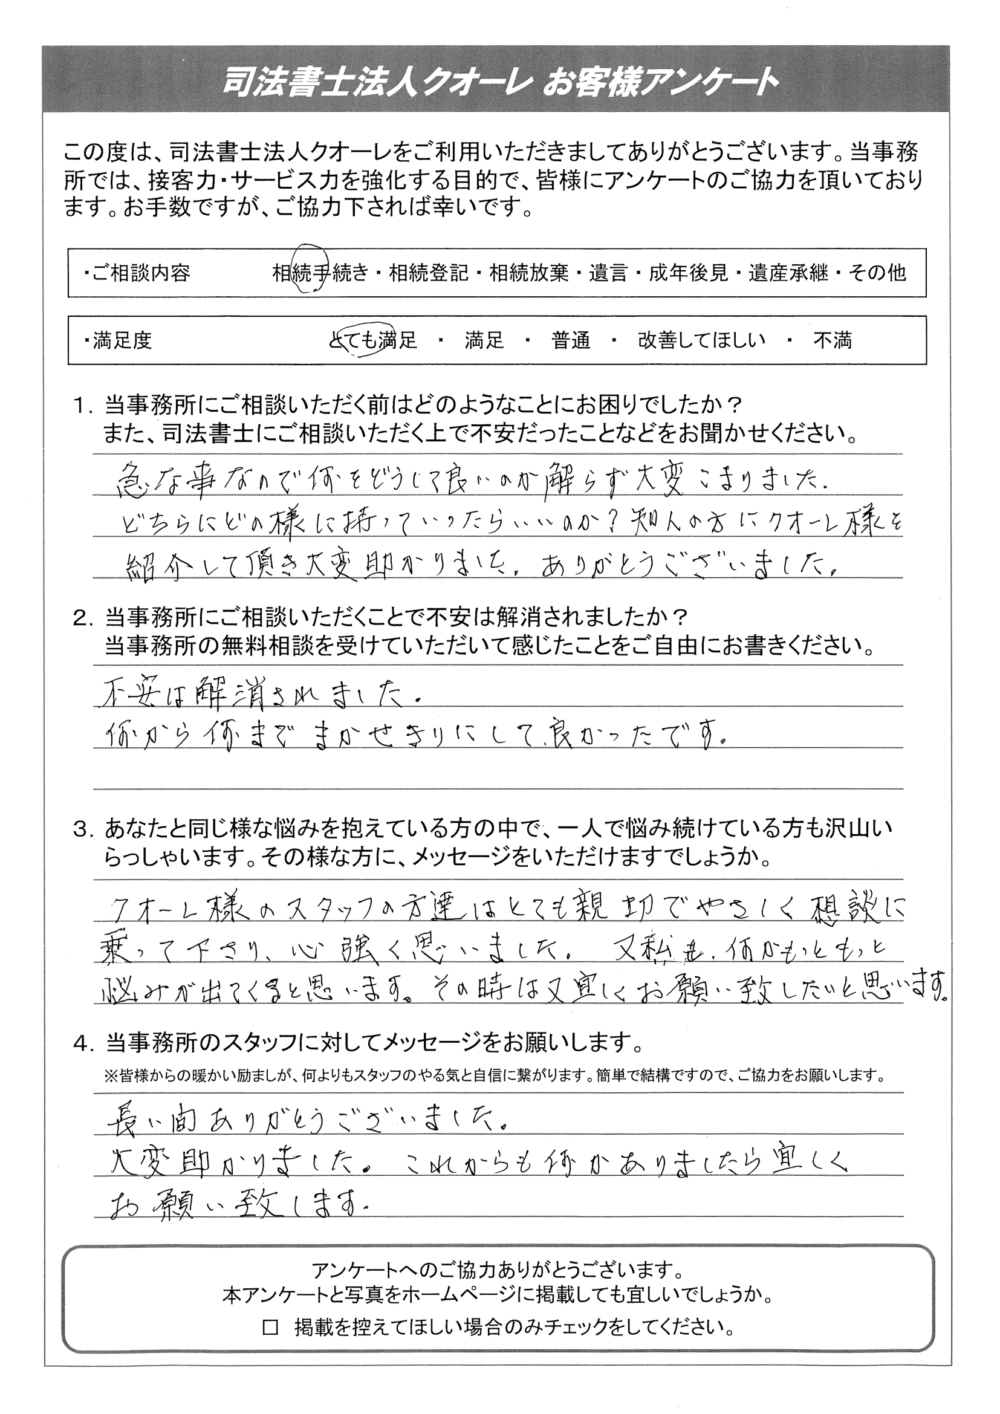 司法書士法人クオーレ お客様アンケート
この度は、司法書士法人クオーレをご利用いただきましてありがとうございます。当事務
所では、接客力・サービス力を強化する目的で、皆様にアンケートのご協力を頂いており
ます。お手数ですが、ご協力下されば幸いです。
・ご相談内容 相続手続き・相続登記・相続放棄・遺言・成年後見・遺産承継・その他
・満足度 とても満足 ・ 満足 ・ 普通 ・ 改善してほしい ・ 不満
1. 当事務所にご相談いただく前はどのようなことにお困りでしたか?
また、司法書士にご相談いただく上で不安だったことなどをお聞かせください。
急な事なので何をどうして良いのか解らず大変こまりました.
どちらにどの様に持っていったらいいのか?知人の方にクオーレ様を
紹介して頂き大変助かりました。ありがとうございました。
2. 当事務所にご相談いただくことで不安は解消されましたか?
当事務所の無料相談を受けていただいて感じたことをご自由にお書きください。
不安は解消されました。
何から何までまかせきりにして、良かったです。
3. あなたと同じ様な悩みを抱えている方の中で、一人で悩み続けている方も沢山い
らっしゃいます。その様な方に、メッセージをいただけますでしょうか。
クオーレ様のスタッフの方達はとても親切でやさしく想談に
乗って下さり、心強く思いました。又私も、何かもっともっと
悩みが出てくると思います。その時は又宜しくお願い致したいと思います。
4. 当事務所のスタッフに対してメッセージをお願いします。
※皆様からの暖かい励ましが、何よりもスタッフのやる気と自信に繋がります。簡単で結構ですので、ご協力をお願いします。
長い間ありがとうございました。
大変助かりました。これからも何かありましたら宜しく
お願い致します.
アンケートへのご協力ありがとうございます。
本アンケートと写真をホームページに掲載しても宜しいでしょうか。
□ 掲載を控えてほしい場合のみチェックをしてください。